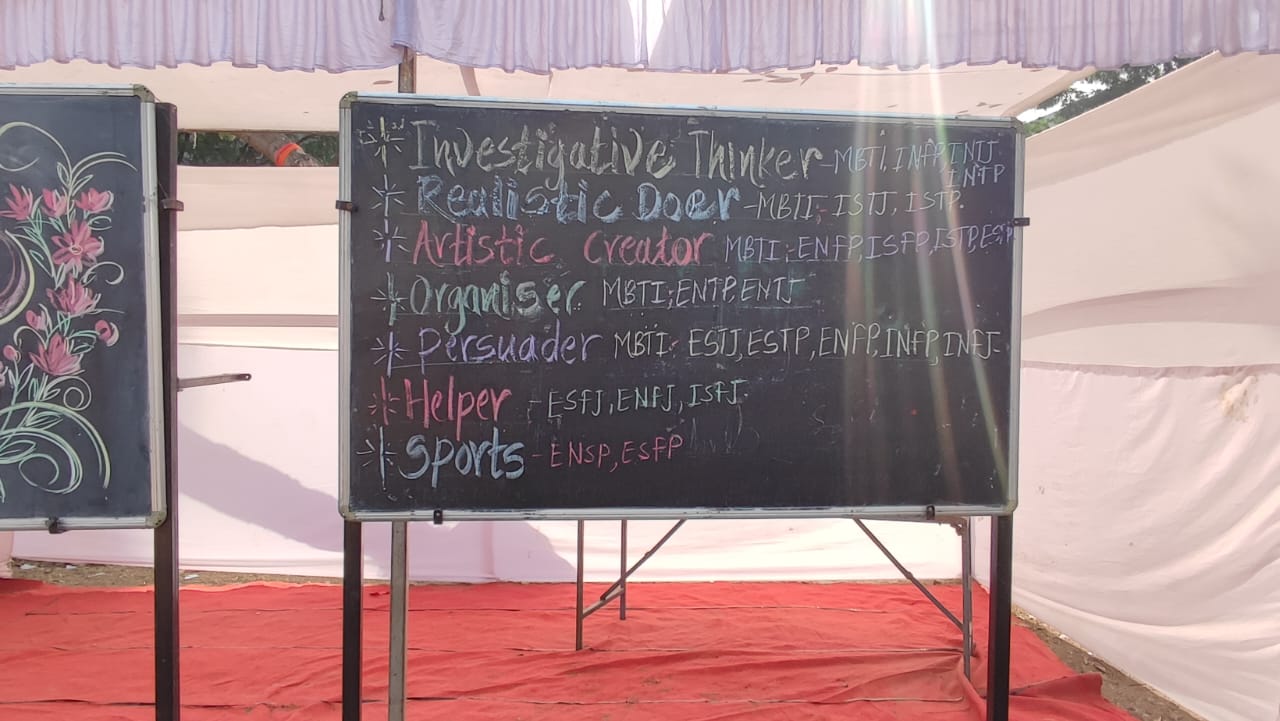 Investigative Thinker - MBTI, INFP, INTJ
INTP
Realistic Doer - MBTI- ISTJ, ISTP.
Artistic Creator MBTI:-ENFP, ISFP, ISTP, ESFP
Organiser MBTI; ENTP, ENTJ
Persuader MBTI: ESTJ, ESTP, ENFP, INFP, INFJ-
Helper - ESFJ, ENFJ, ISFJ.
Sports - ENSP, ESFP